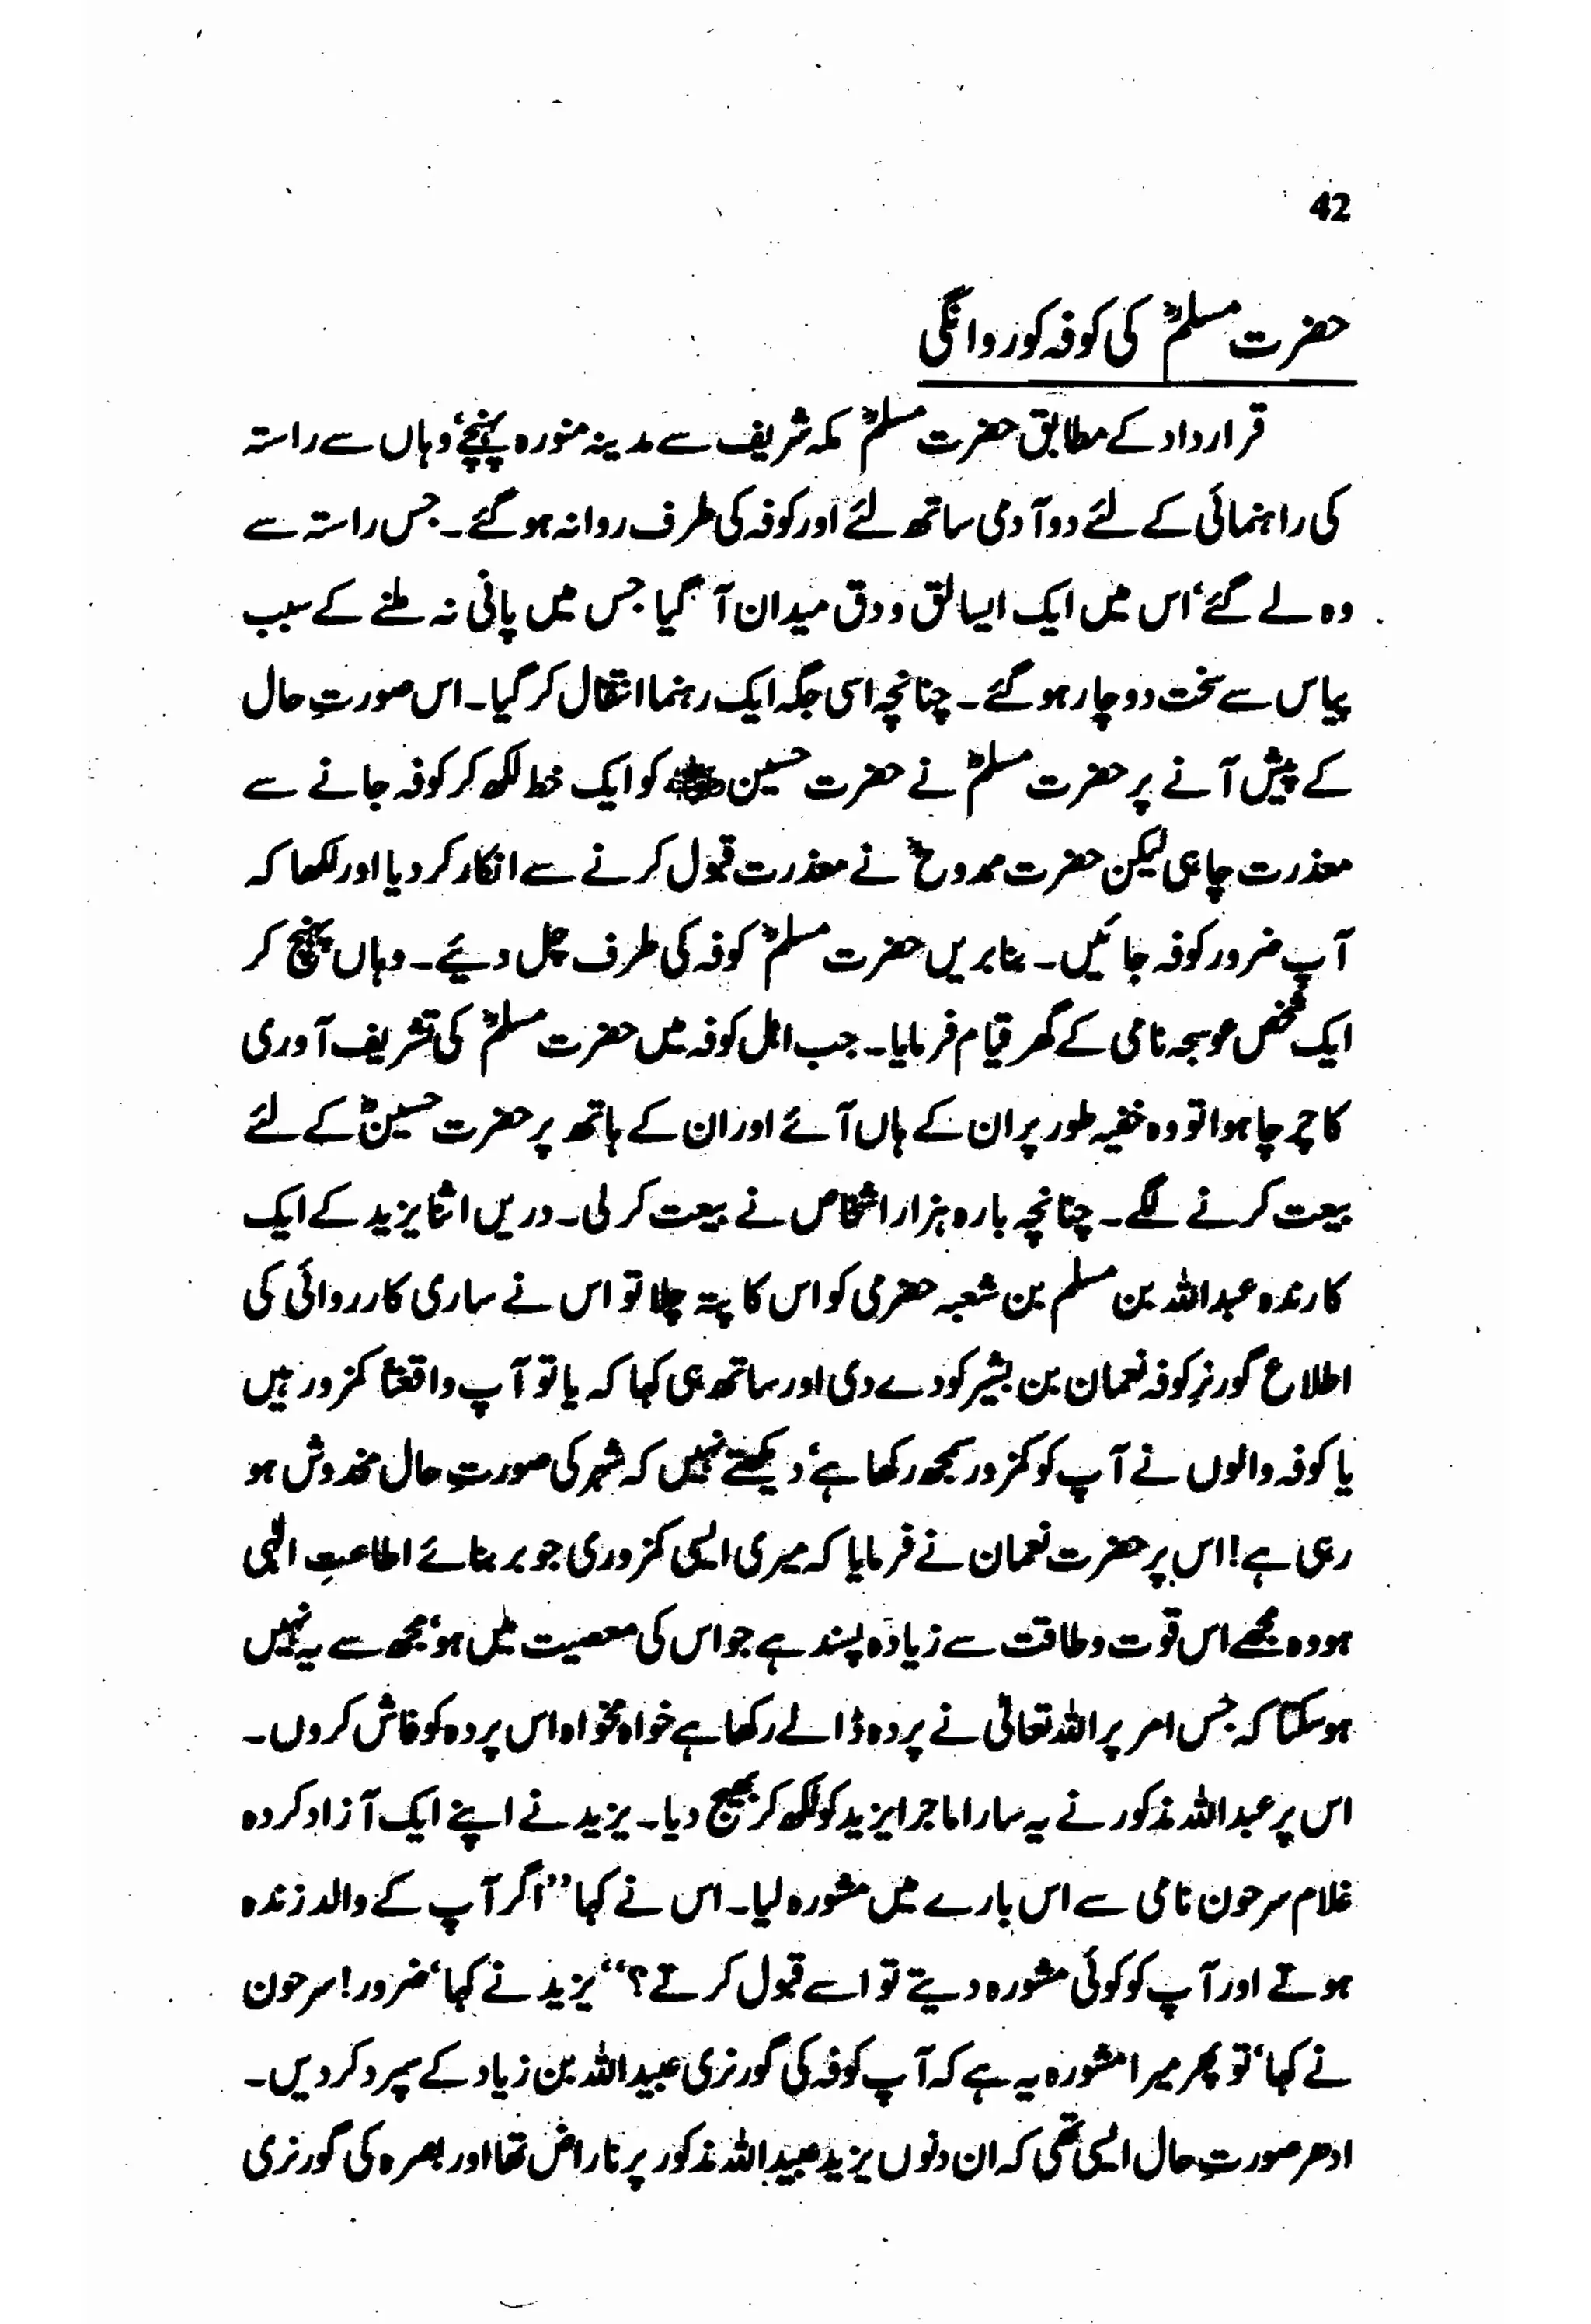 42
حضرت مسلمؓ کی کوفہ کو روانگی
قرارداد کے مطابق حضرت مسلمؓ مکہ شریف سے مدینہ منورہ پہنچے‘ وہاں سے راستہ
کی راہنمائی کے لئے دو آدمی ساتھ لئے اور کوفہ کی طرف روانہ ہوگئے۔ جس راستہ سے
وہ لے گئے‘ اس میں ایک ایسا لق و دق میدان آ گیا جس میں پانی نہ ملنے کے سبب
پیاس سے سخت دوچار ہوگئے۔ چنانچہ اسی جگہ ایک رہنما انتقال کر گیا۔ اس صورتِ حال
کے پیش آنے پر حضرت مسلمؓ نے حضرت حسین رضی اللہ عنہ کو ایک خط لکھ کر کوفہ جانے سے
معذرت چاہی لیکن حضرت ممدوحؓ نے معذرت قبول کرنے سے انکار کر دیا اور لکھا کہ
آپ ضرور کوفہ جائیں۔ بنابریں حضرت مسلمؓ کوفہ کی طرف چل دیئے۔ وہاں پہنچ کر
ایک شخص عوسجہ نامی کے گھر قیام فرمایا۔ جب اہل کوفہ میں حضرت مسلمؓ کی تشریف آوری
کا چرچا ہوا تو وہ خفیہ طور پر ان کے ہاں آئے اور ان کے ہاتھ پر حضرت حسینؓ کے لئے
بیعت کرنے لگے۔ چنانچہ بارہ ہزار اشخاص نے بیعت کر لی۔ دریں اثنا یزید کے ایک
کارندہ عبداللہ بن مسلم بن شعبہ حضرمی کو اس کا پتہ چلا تو اس نے ساری کارروائی کی
اطلاع گورنرِ کوفہ نعمان بن بشیر کو دے دی اور ساتھ ہی کہا کہ یا تو آپ واقعتاً کمزور ہیں
یا کوفہ والوں نے آپ کو کمزور سمجھ رکھا ہے‘ دیکھتے نہیں کہ شہر کی صورتِ حال مخدوش ہو
رہی ہے! اس پر حضرت نعمان نے فرمایا کہ میری ایسی کمزوری جو بر بنائے اطاعتِ الٰہی
ہو وہ مجھے اس قوت و طاقت سے زیادہ پسند ہے جو اس کی معصیت میں ہو‘ مجھ سے یہ نہیں
ہوسکتا کہ جس امر پر اللہ تعالیٰ نے پردہ ڈالے رکھا ہے خواہ مخواہ اس پردہ کو فاش کروں۔
اس پر عبداللہ مذکور نے یہ سارا ماجرا یزید کو لکھ کر بھیج دیا۔ یزید نے اپنے ایک آزاد کردہ
غلام سرحون نامی سے اس بارے میں مشورہ لیا۔ اس نے کہا ’’اگر آپ کے والد زندہ
ہوتے اور آپ کو کوئی مشورہ دیتے تو اسے قبول کرتے؟‘‘ یزید نے کہا‘ ضرور! سرحون
نے کہا‘ تو پھر میرا مشورہ یہ ہے کہ آپ کوفہ کی گورنری عبیداللہ بن زیاد کے سپرد کر دیں۔
ادھر صورتِ حال ایسی تھی کہ ان دنوں یزید عبیداللہ مذکور پر ناراض تھا اور بصرہ کی گورنری